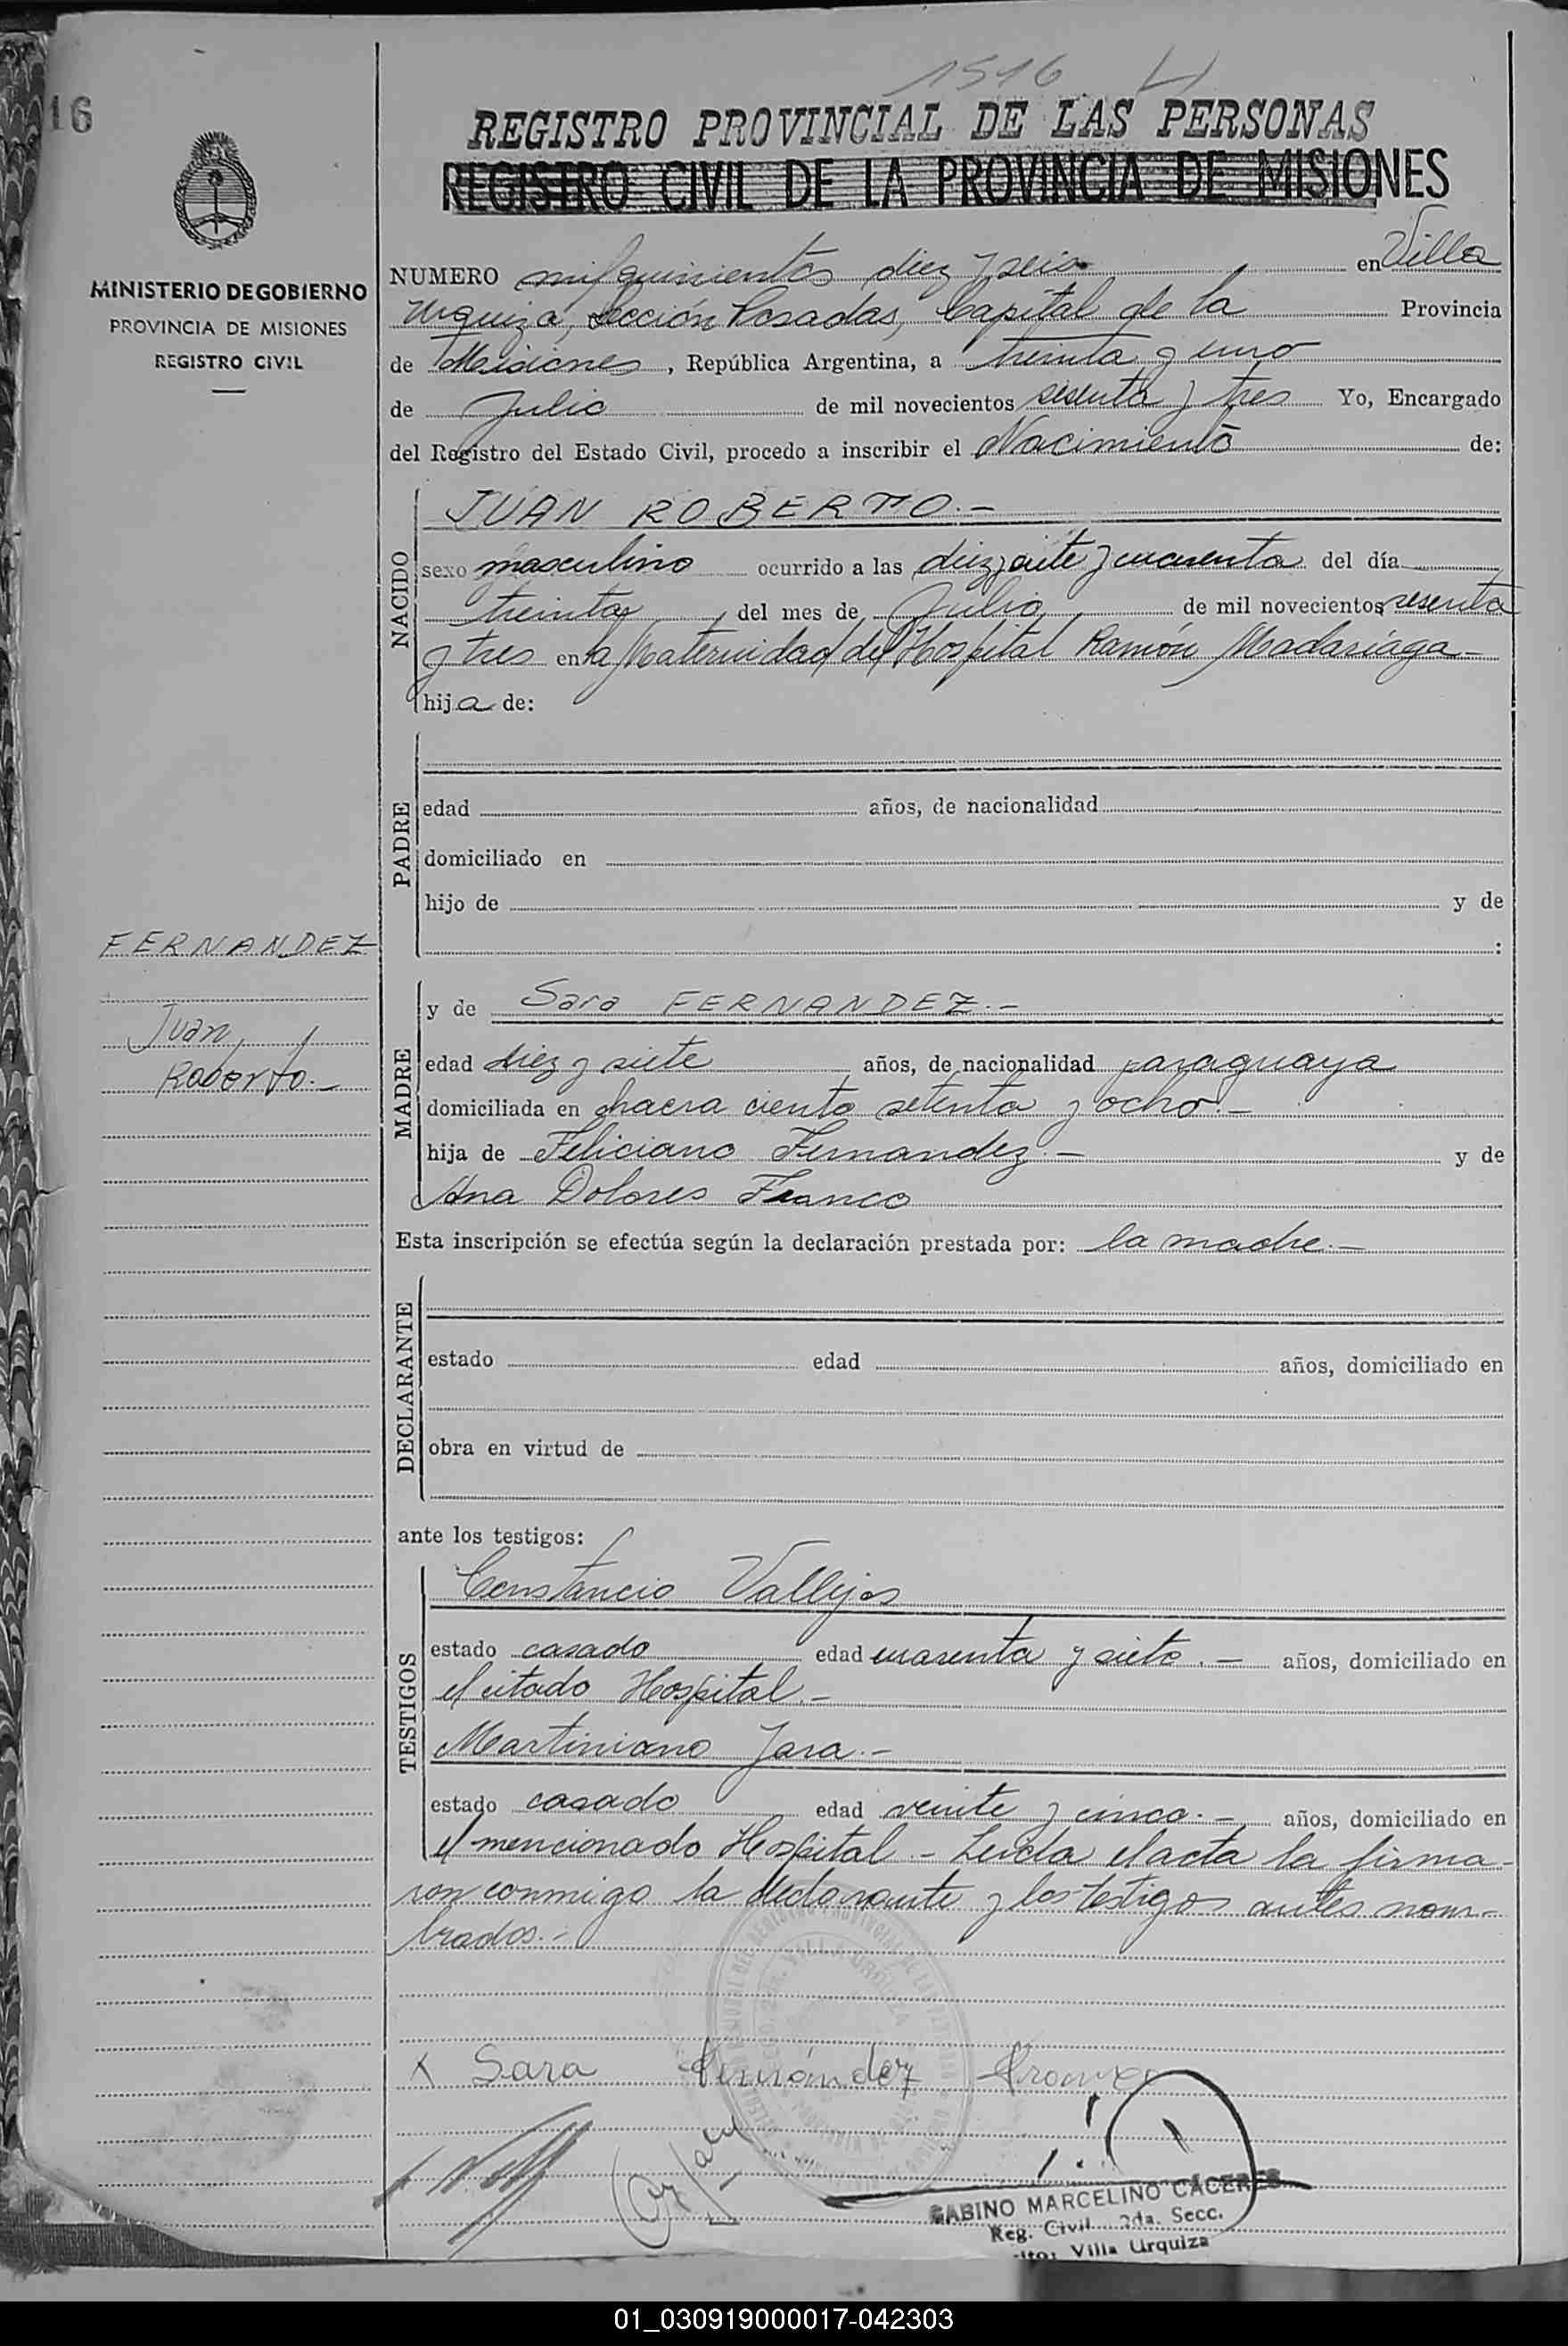 1516
16
REGISTRO PROVINCIAL DE LAS PERSONAS
REGISTRO CIVIL DE LA PROVINCIA DE MISIONES
MINISTERIO DE GOBIERNO
PROVINCIA DE MISIONES
REGISTRO CIVIL
NUMERO mil quinientos diez y seis en Villa
Urquiza, Sección Posadas, Capital de la Provincia
de Misiones, República Argentina, a treinta y uno
de Julio de mil novecientos sesenta y tres Yo, Encargado
del Registro del Estado Civil, procedo a inscribir el Nacimiento de:
NACIDO
JUAN ROBERTO.-
sexo masculino ocurrido a las diez y siete y cuarenta del día
treinta del mes de Julio de mil novecientos sesenta
y tres en la Maternidad del Hospital Ramón Madariaga-
hija de:
PADRE
edad años, de nacionalidad
domiciliado en
hijo de y de
:
FERNANDEZ
Juan
Roberto.-
MADRE
y de Sara FERNANDEZ.-
edad diez y siete años, de nacionalidad paraguaya
domiciliada en chacra ciento setenta y ocho.-
hija de Feliciano Fernandez.- y de
Ana Dolores Franco
Esta inscripción se efectúa según la declaración prestada por: la madre.-
DECLARANTE
estado edad años, domiciliado en
obra en virtud de
ante los testigos:
TESTIGOS
Constancio Vallejos
estado casado edad cuarenta y siete.- años, domiciliado en
el citado Hospital.-
Martiniano Jara.-
estado casado edad veinte y cinco.- años, domiciliado en
el mencionado Hospital.- Leida el acta la firma-
ron conmigo la declarante y los testigos antes nom-
brados.-
x Sara Fernández Franco
SABINO MARCELINO CACERES
Reg. Civil 2da. Secc.
Villa Urquiza
01_030919000017-042303